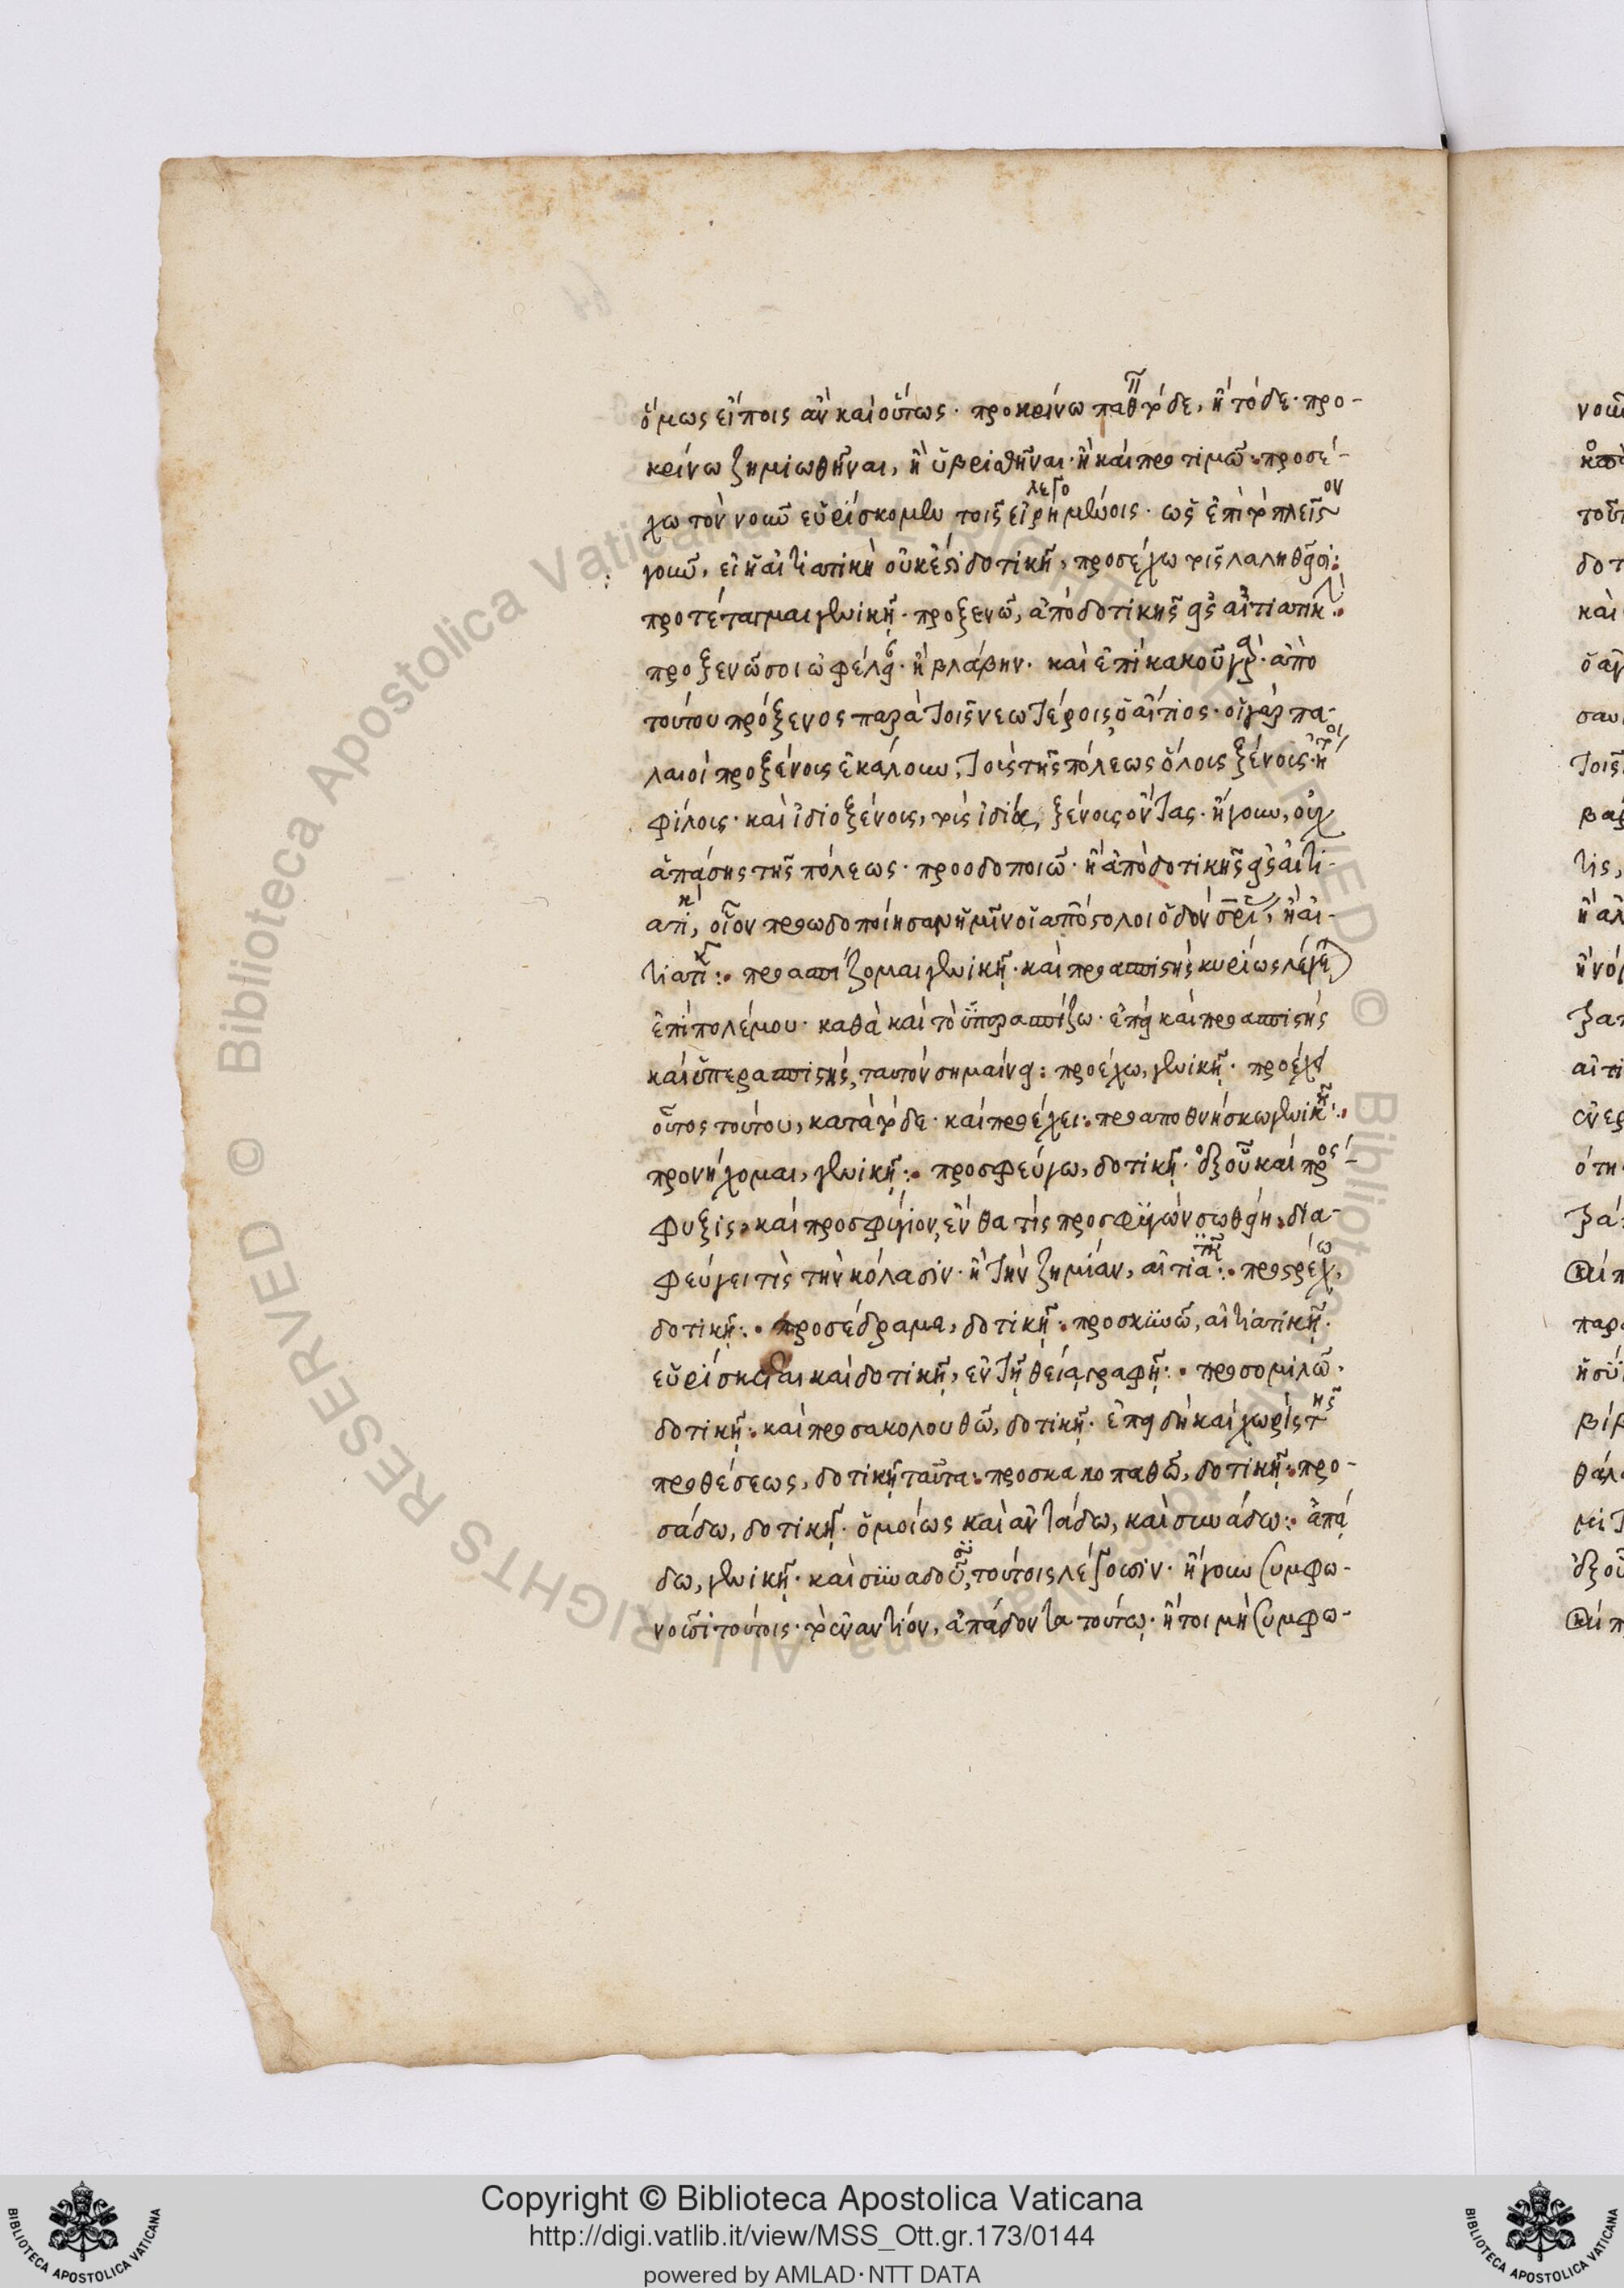 ὅμως εἴποις ἂν καὶ οὕτως· προκρίνω παθ τόδε, ἢ τόδε· προ-
κρίνω ζημιωθῆναι, ἢ ὑβρισθῆναι· ἢ καὶ προτιμῶ: προσέ-
χω τὸν νοῦν εὑρίσκομεν τοῖς εἰρημένοις λεγο· ὡς ἐπὶ τὸ πλεῖστον
γοῦν, εἰ ἡ αἰτιατικὴ οὐκ ἔστι δοτικῆ, προσέχω τοῖς λαληθεῖσι:
προτέταγμαι γενικῆ· προξενῶ, ἀπὸ δοτικῆς εἰς αἰτιατικ:
προξενῶ σοι ὠφέλειαν· ἢ βλάβην· καὶ ἐπὶ κακοῦ γὰρ· ἀπὸ
τούτου πρόξενος παρὰ τοῖς νεωτέροις, ὁ αἴτιος· οἱ γὰρ πα-
λαιοὶ προξένοις ἐκάλουν, τοὺς τῆς πόλεως ὅλοις ξένοις· ἤτοι
φίλοις· καὶ ἰδιοξένοις, τοὺς ἰδίᾳ ξένοις ὄντας· ἤγουν, οὐχ
ἁπάσης τῆς πόλεως· προοδοποιῶ· ἢ ἀπὸ δοτικῆς εἰς αἰτι-
ατικὴ, οἷον προωδοποίησαν ἡμῖν οἱ ἀπόστολοι ὁδὸν σωτηρίας, ἢ αἰ-
τιατικ: προασπίζομαι γενικῆ· καὶ προασπιστὴς κυρίως λέγεται
ἐπὶ πολέμου· καθὰ καὶ τὸ ὑπερασπίζω· ἐπεὶ καὶ προασπιστὴς
καὶ ὑπερασπιστὴς, ταυτὸν σημαίνει: προέχω, γενικῆ· προέχει
οὗτος τούτου, κατὰ τόδε· καὶ προέχει: προαποθνήσκω γενικῆ:
προνήχομαι, γενικῆ: προσφεύγω, δοτικῆ· ἐξ οὗ καὶ πρόσ-
φυξις, καὶ προσφύγιον, ἔνθα τὶς προσφυγὼν σωθείη: δια-
φεύγει τὶς τὴν κόλασιν· ἢ τὴν ζημίαν, αἰτιατικῆ: προστρέχω,
δοτικῆ: προσέδραμε, δοτικῆ: προσκυνῶ, αἰτιατικῆ·
εὑρίσκεται καὶ δοτικῆ, ἐν τῇ θείᾳ γραφῇ: προσομιλῶ,
δοτικῆ: καὶ προσακολουθῶ, δοτικῆ· ἐπειδὴ καὶ χωρὶς τῆς
προθέσεως, δοτικῆ ταῦτα: προσκακοπαθῶ, δοτικῆ: προ-
σάδω, δοτικῆ· ὁμοίως καὶ ἀντάδω, καὶ συνάδω: ἀπά
δω, γενικῆ· καὶ συνάδουσι, τούτοις λέγουσιν· ἤγουν συμφω-
νοῦσι τούτοις· τὸ ἐναντίον, ἀπάδοντα τούτῳ· ἤτοι μὴ συμφω-
Copyright © Biblioteca Apostolica Vaticana
http://digi.vatlib.it/view/MSS_Ott.gr.173/0144
powered by AMLAD·NTT DATA